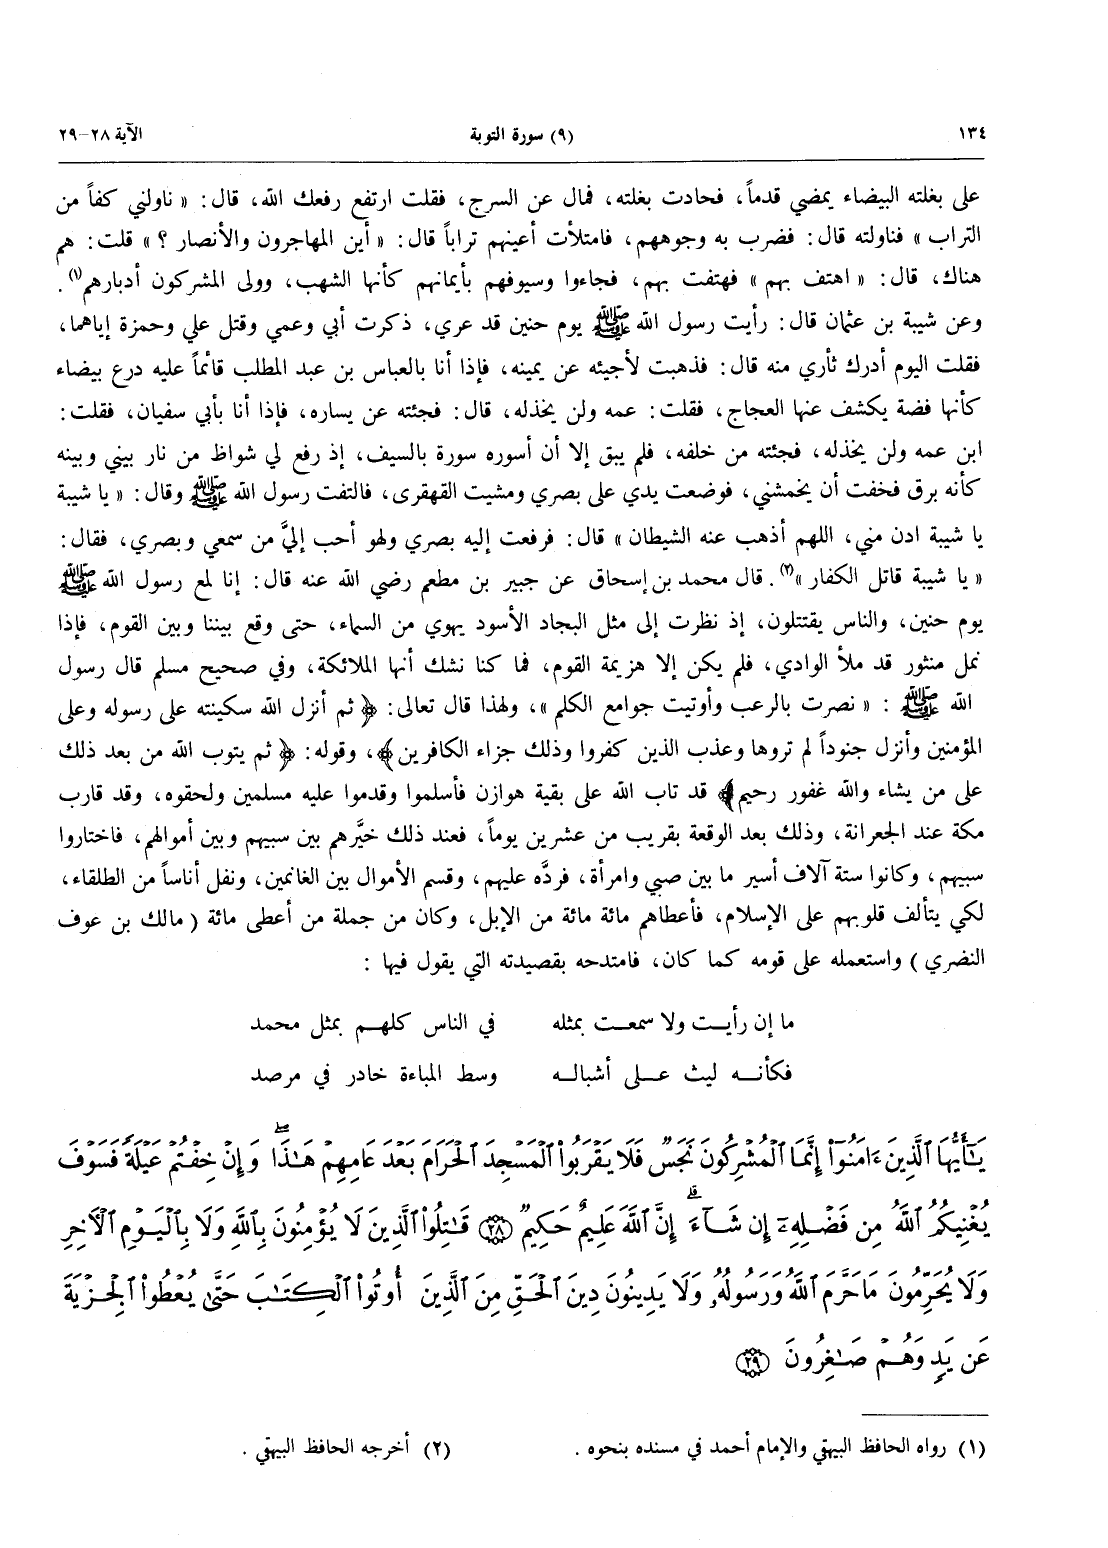 ١٣٤ (٩) سورة التوبة الآية ٢٨-٢٩
على بغلته البيضاء يمضي قدماً، فحادت بغلته، فمال عن السرج، فقلت ارتفع رفعك الله، قال: « ناولني كفاً من
التراب » فناولته قال: فضرب به وجوههم، فامتلأت أعينهم تراباً قال: « أين المهاجرون والأنصار ؟ » قلت: هم
هناك، قال: « اهتف بهم » فهتفت بهم، فجاءوا وسيوفهم بأيمانهم كأنها الشهب، وولى المشركون أدبارهم(١) .
وعن شيبة بن عثمان قال: رأيت رسول الله ﷺ يوم حنين قد عري، ذكرت أبي وعمي وقتل علي وحمزة إياهما،
فقلت اليوم أدرك ثأري منه قال: فذهبت لأجيئه عن يمينه، فإذا أنا بالعباس بن عبد المطلب قائماً عليه درع بيضاء
كأنها فضة يكشف عنها العجاج، فقلت: عمه ولن يخذله، قال: فجئته عن يساره، فإذا أنا بأبي سفيان، فقلت:
ابن عمه ولن يخذله، فجئته من خلفه، فلم يبق إلا أن أسوره سورة بالسيف، إذ رفع لي شواظ من نار بيني وبينه
كأنه برق فخفت أن يخمشني، فوضعت يدي على بصري ومشيت القهقرى، فالتفت رسول الله ﷺ وقال: « يا شيبة
يا شيبة ادن مني، اللهم أذهب عنه الشيطان » قال: فرفعت إليه بصري ولهو أحب إليَّ من سمعي وبصري، فقال:
« يا شيبة قاتل الكفار »(٢) . قال محمد بن إسحاق عن جبير بن مطعم رضي الله عنه قال: إنا لمع رسول الله ﷺ
يوم حنين، والناس يقتتلون، إذ نظرت إلى مثل البجاد الأسود يهوي من السماء، حتى وقع بيننا وبين القوم، فإذا
نمل منثور قد ملأ الوادي، فلم يكن إلا هزيمة القوم، فما كنا نشك أنها الملائكة، وفي صحيح مسلم قال رسول
الله ﷺ : « نصرت بالرعب وأوتيت جوامع الكلم »، ولهذا قال تعالى: ﴿ ثم أنزل الله سكينته على رسوله وعلى
المؤمنين وأنزل جنوداً لم تروها وعذب الذين كفروا وذلك جزاء الكافرين ﴾، وقوله: ﴿ ثم يتوب الله من بعد ذلك
على من يشاء والله غفور رحيم ﴾ قد تاب الله على بقية هوازن فأسلموا وقدموا عليه مسلمين ولحقوه، وقد قارب
مكة عند الجعرانة، وذلك بعد الوقعة بقريب من عشرين يوماً، فعند ذلك خيَّرهم بين سبيهم وبين أموالهم، فاختاروا
سبيهم، وكانوا ستة آلاف أسير ما بين صبي وامرأة، فردَّه عليهم، وقسم الأموال بين الغانمين، ونفل أناساً من الطلقاء،
لكي يتألف قلوبهم على الإسلام، فأعطاهم مائة مائة من الإبل، وكان من جملة من أعطى مائة ( مالك بن عوف
النضري ) واستعمله على قومه كما كان، فامتدحه بقصيدته التي يقول فيها :
ما إن رأيت ولا سمعت بمثله في الناس كلهم بمثل محمد
فكأنه ليث على أشباله وسط المباءة خادر في مرصد
يَٰٓأَيُّهَا ٱلَّذِينَ ءَامَنُوٓا۟ إِنَّمَا ٱلْمُشْرِكُونَ نَجَسٌ فَلَا يَقْرَبُوا۟ ٱلْمَسْجِدَ ٱلْحَرَامَ بَعْدَ عَامِهِمْ هَٰذَا ۚ وَإِنْ خِفْتُمْ عَيْلَةً فَسَوْفَ
يُغْنِيكُمُ ٱللَّهُ مِن فَضْلِهِۦٓ إِن شَآءَ ۚ إِنَّ ٱللَّهَ عَلِيمٌ حَكِيمٌ ﴿٢٨﴾ قَٰتِلُوا۟ ٱلَّذِينَ لَا يُؤْمِنُونَ بِٱللَّهِ وَلَا بِٱلْيَوْمِ ٱلْءَاخِرِ
وَلَا يُحَرِّمُونَ مَا حَرَّمَ ٱللَّهُ وَرَسُولُهُۥ وَلَا يَدِينُونَ دِينَ ٱلْحَقِّ مِنَ ٱلَّذِينَ أُوتُوا۟ ٱلْكِتَٰبَ حَتَّىٰ يُعْطُوا۟ ٱلْجِزْيَةَ
عَن يَدٍ وَهُمْ صَٰغِرُونَ ﴿٢٩﴾
(١) رواه الحافظ البيهقي والإمام أحمد في مسنده بنحوه . (٢) أخرجه الحافظ البيهقي .